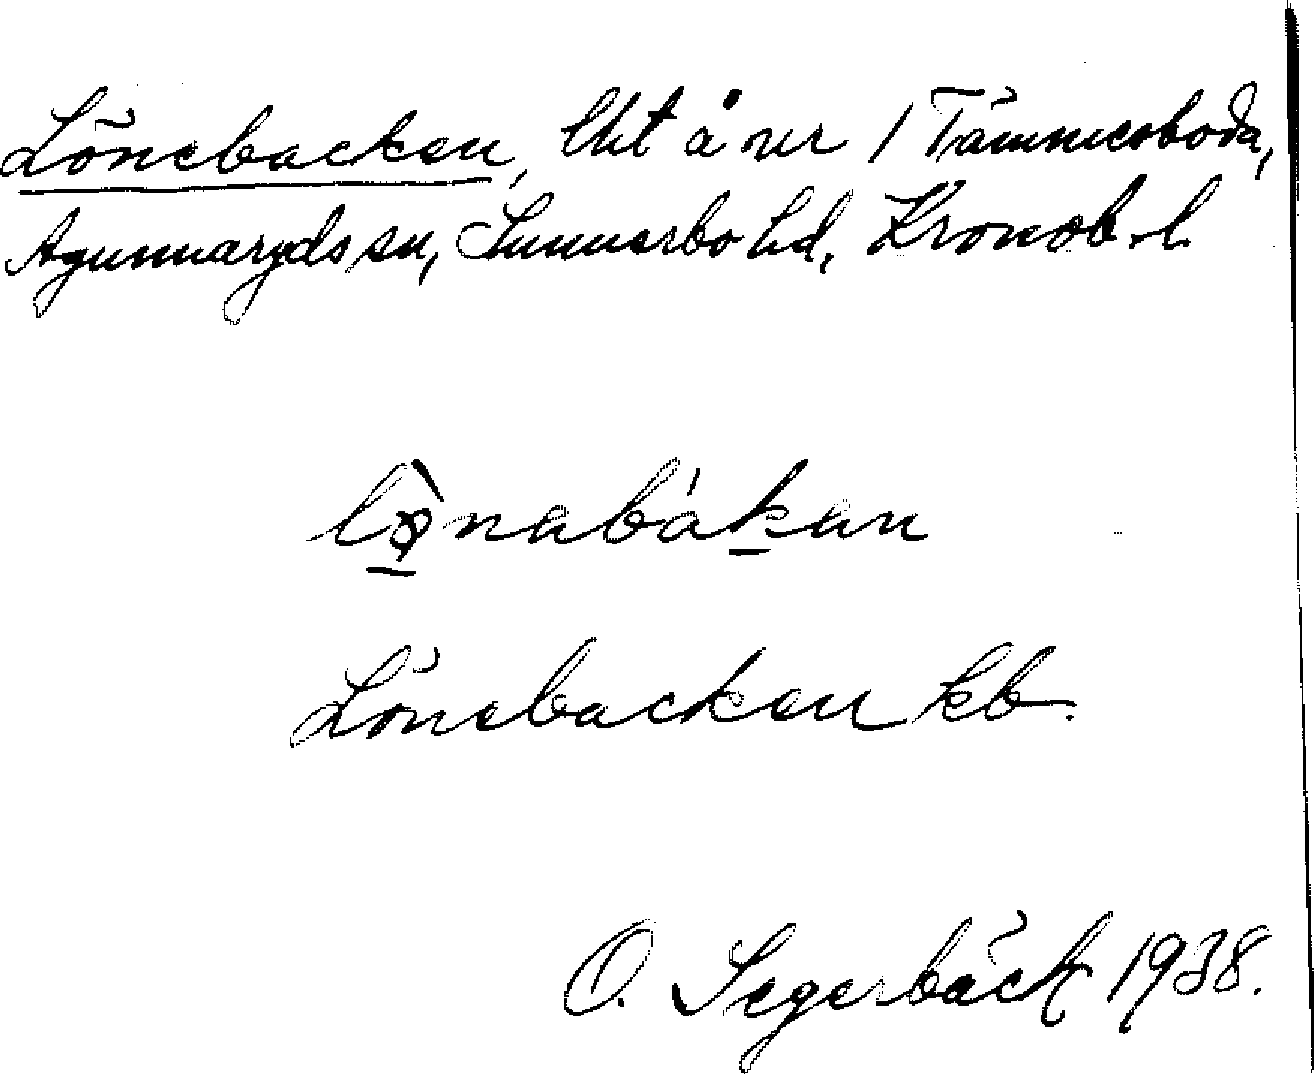 Lönebacken, lht å nr 1 Tämmesboda,
Agunnaryds sn, Sunnerbo hd, Kronob. l.
lø̀nabákan
Lönebacken kb.
O. Segerbäck 1938.